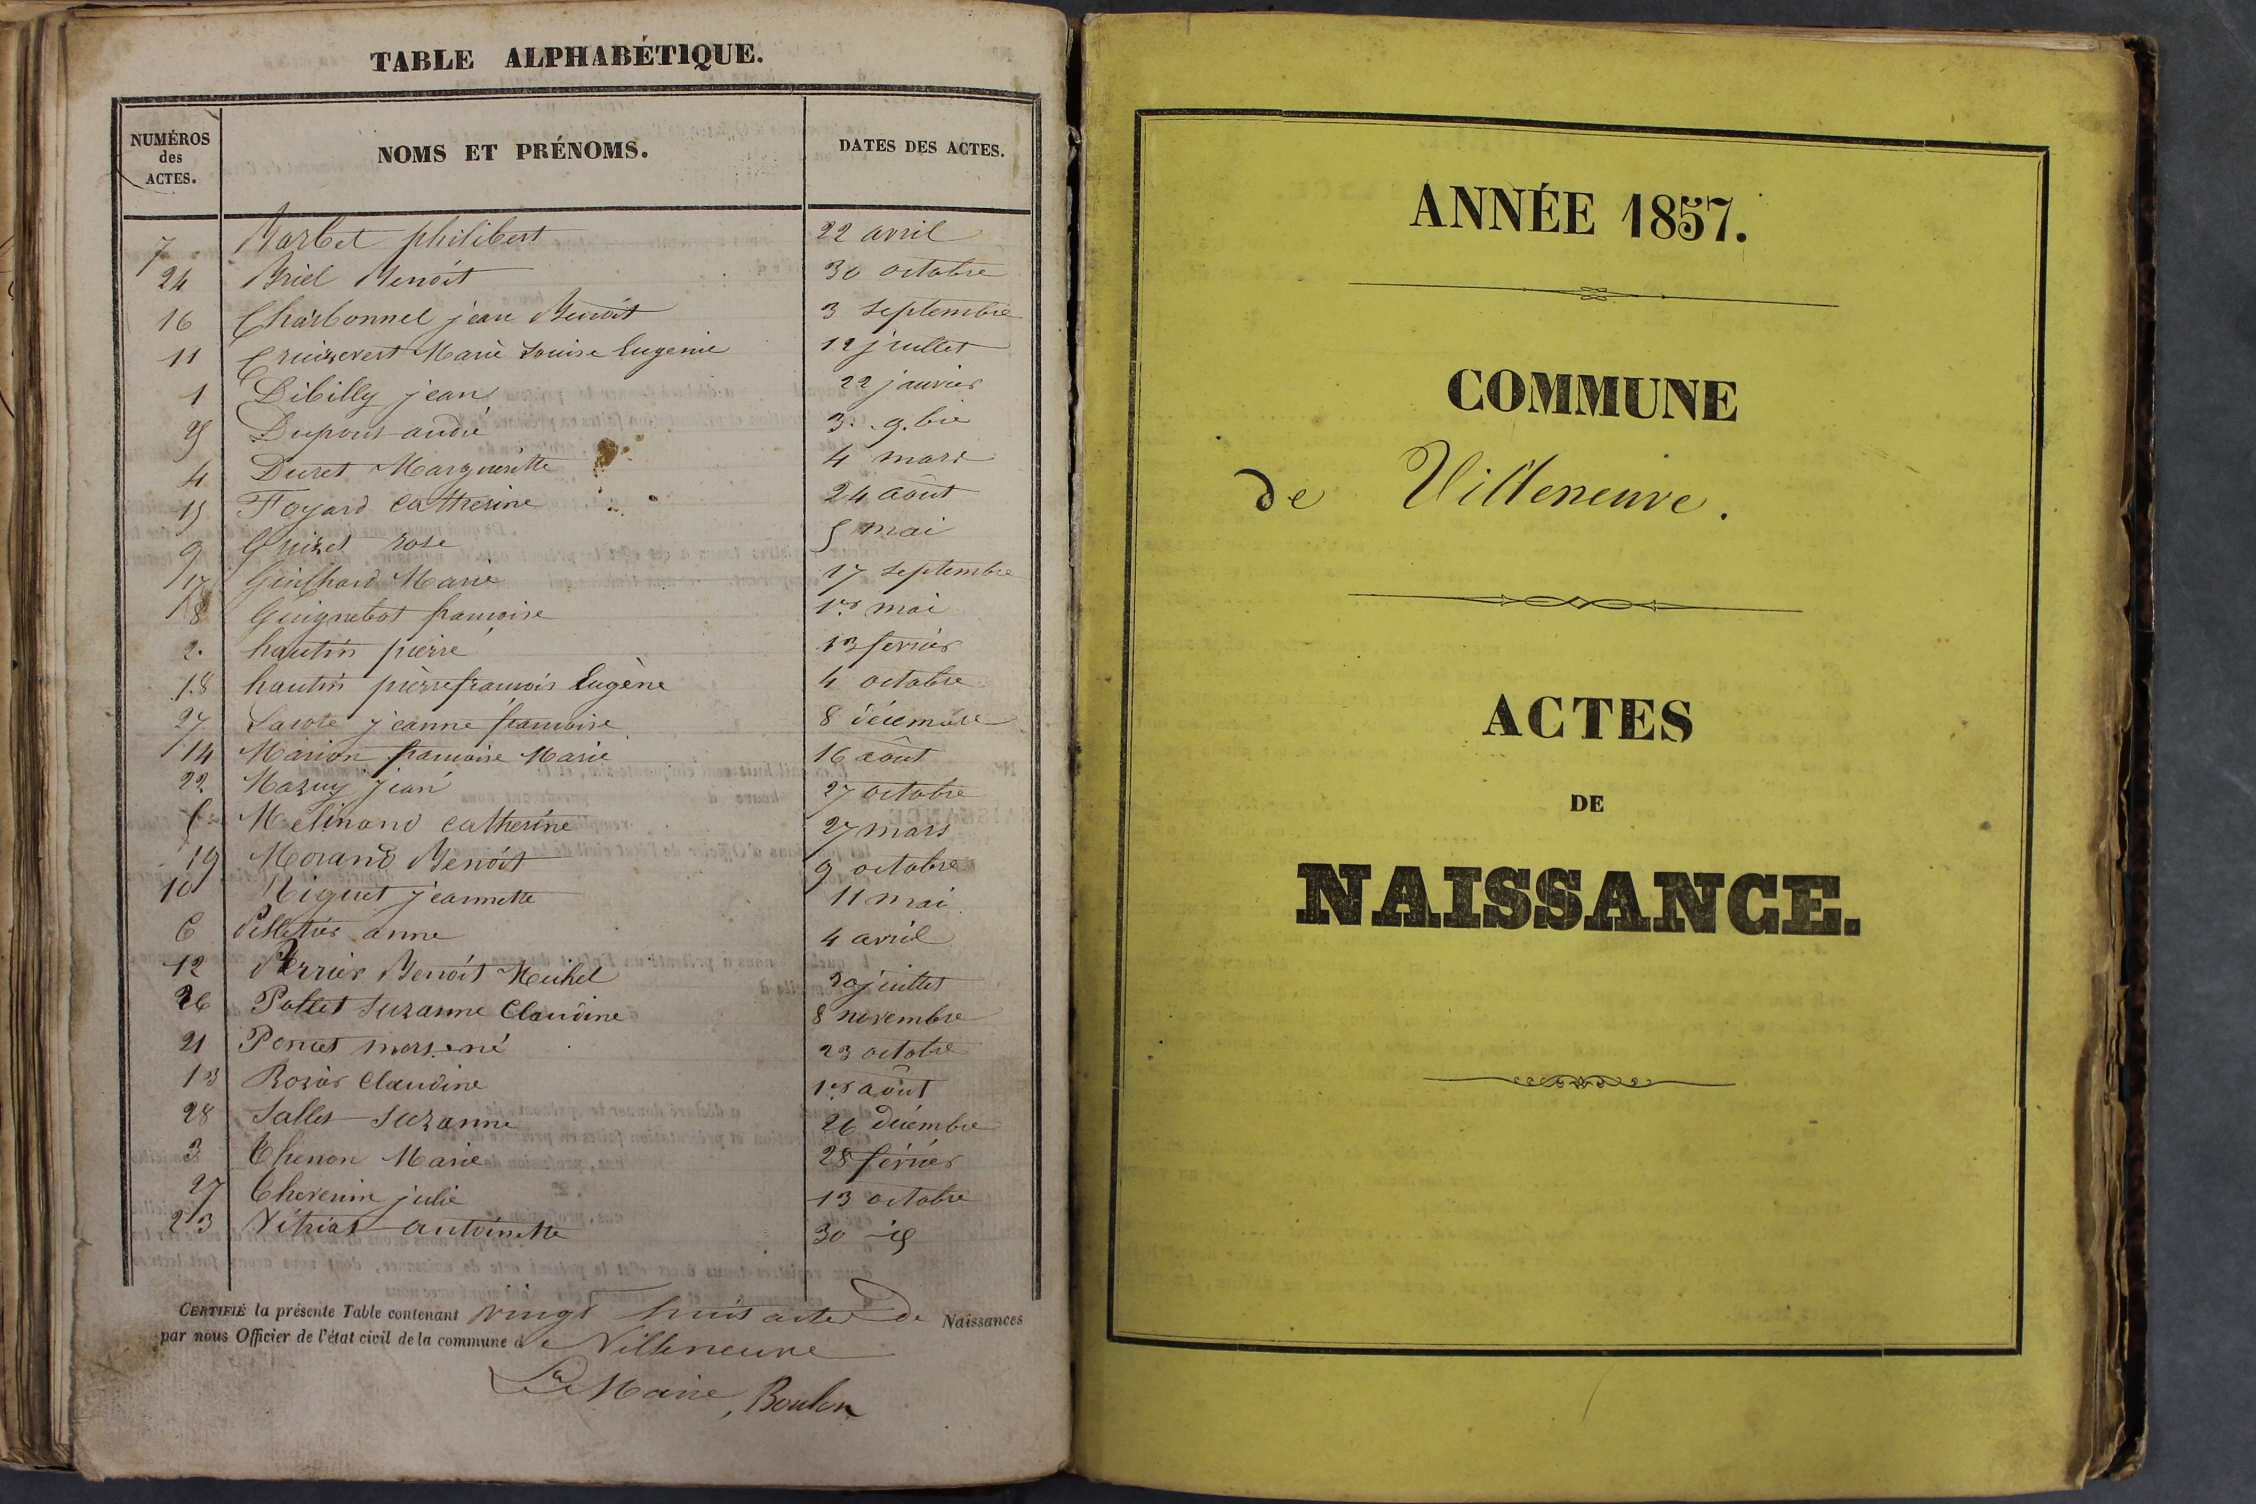 TABLE ALPHABÉTIQUE.
NUMÉROS des ACTES. NOMS ET PRÉNOMS. DATES DES ACTES.
7 Barbet philibert 22 avril
24 Briel Benoit 30 octobre
16 Charbonnel jean Benoit 3 septembre
11 Marie Louise Eugenie 12 juillet
1 Débilly jean 22 janvier
25 Dupont andré 3. 9.bre
4 Duret Margueritte 4 mars
15 Foyard Catherine 24 août
9 Guizet rose 5 mai
17 Guichard Marie 17 septembre
8 françoise 1er mai
2. hautin pierre 13 fevrier
18 hautin pierre françois Eugène 4 octobre
27 jeanne françoise 8 décembre
14 Marion françoise Marie 16 août
22 Mazuy jean 27 octobre
5 Melinand catherine 27 mars
19 Morand Benoit 9 octobre
10 Niguet jeannette 11 mai
6 Pelletier anne 4 avril
12 Perrier Benoit Michel juillet
26 Pollet suzanne Claudine 8 novembre
21 Poncet mors né 23 octobre
13 Rozier Claudine 1er août
28 Sallet Suzanne 26 décembre
3 Thenon Marie 28 février
27 Thevenin julie 13 octobre
23 Vitriat antoinette 30 id
CERTIFIÉ la présente Table contenant vingt huit actes de Naissances
par nous Officier de l'état civil de la commune de Villeneuve
Le Maire, Boulon
ANNÉE 1857.
COMMUNE
de Villeneuve.
ACTES
DE
NAISSANCE.